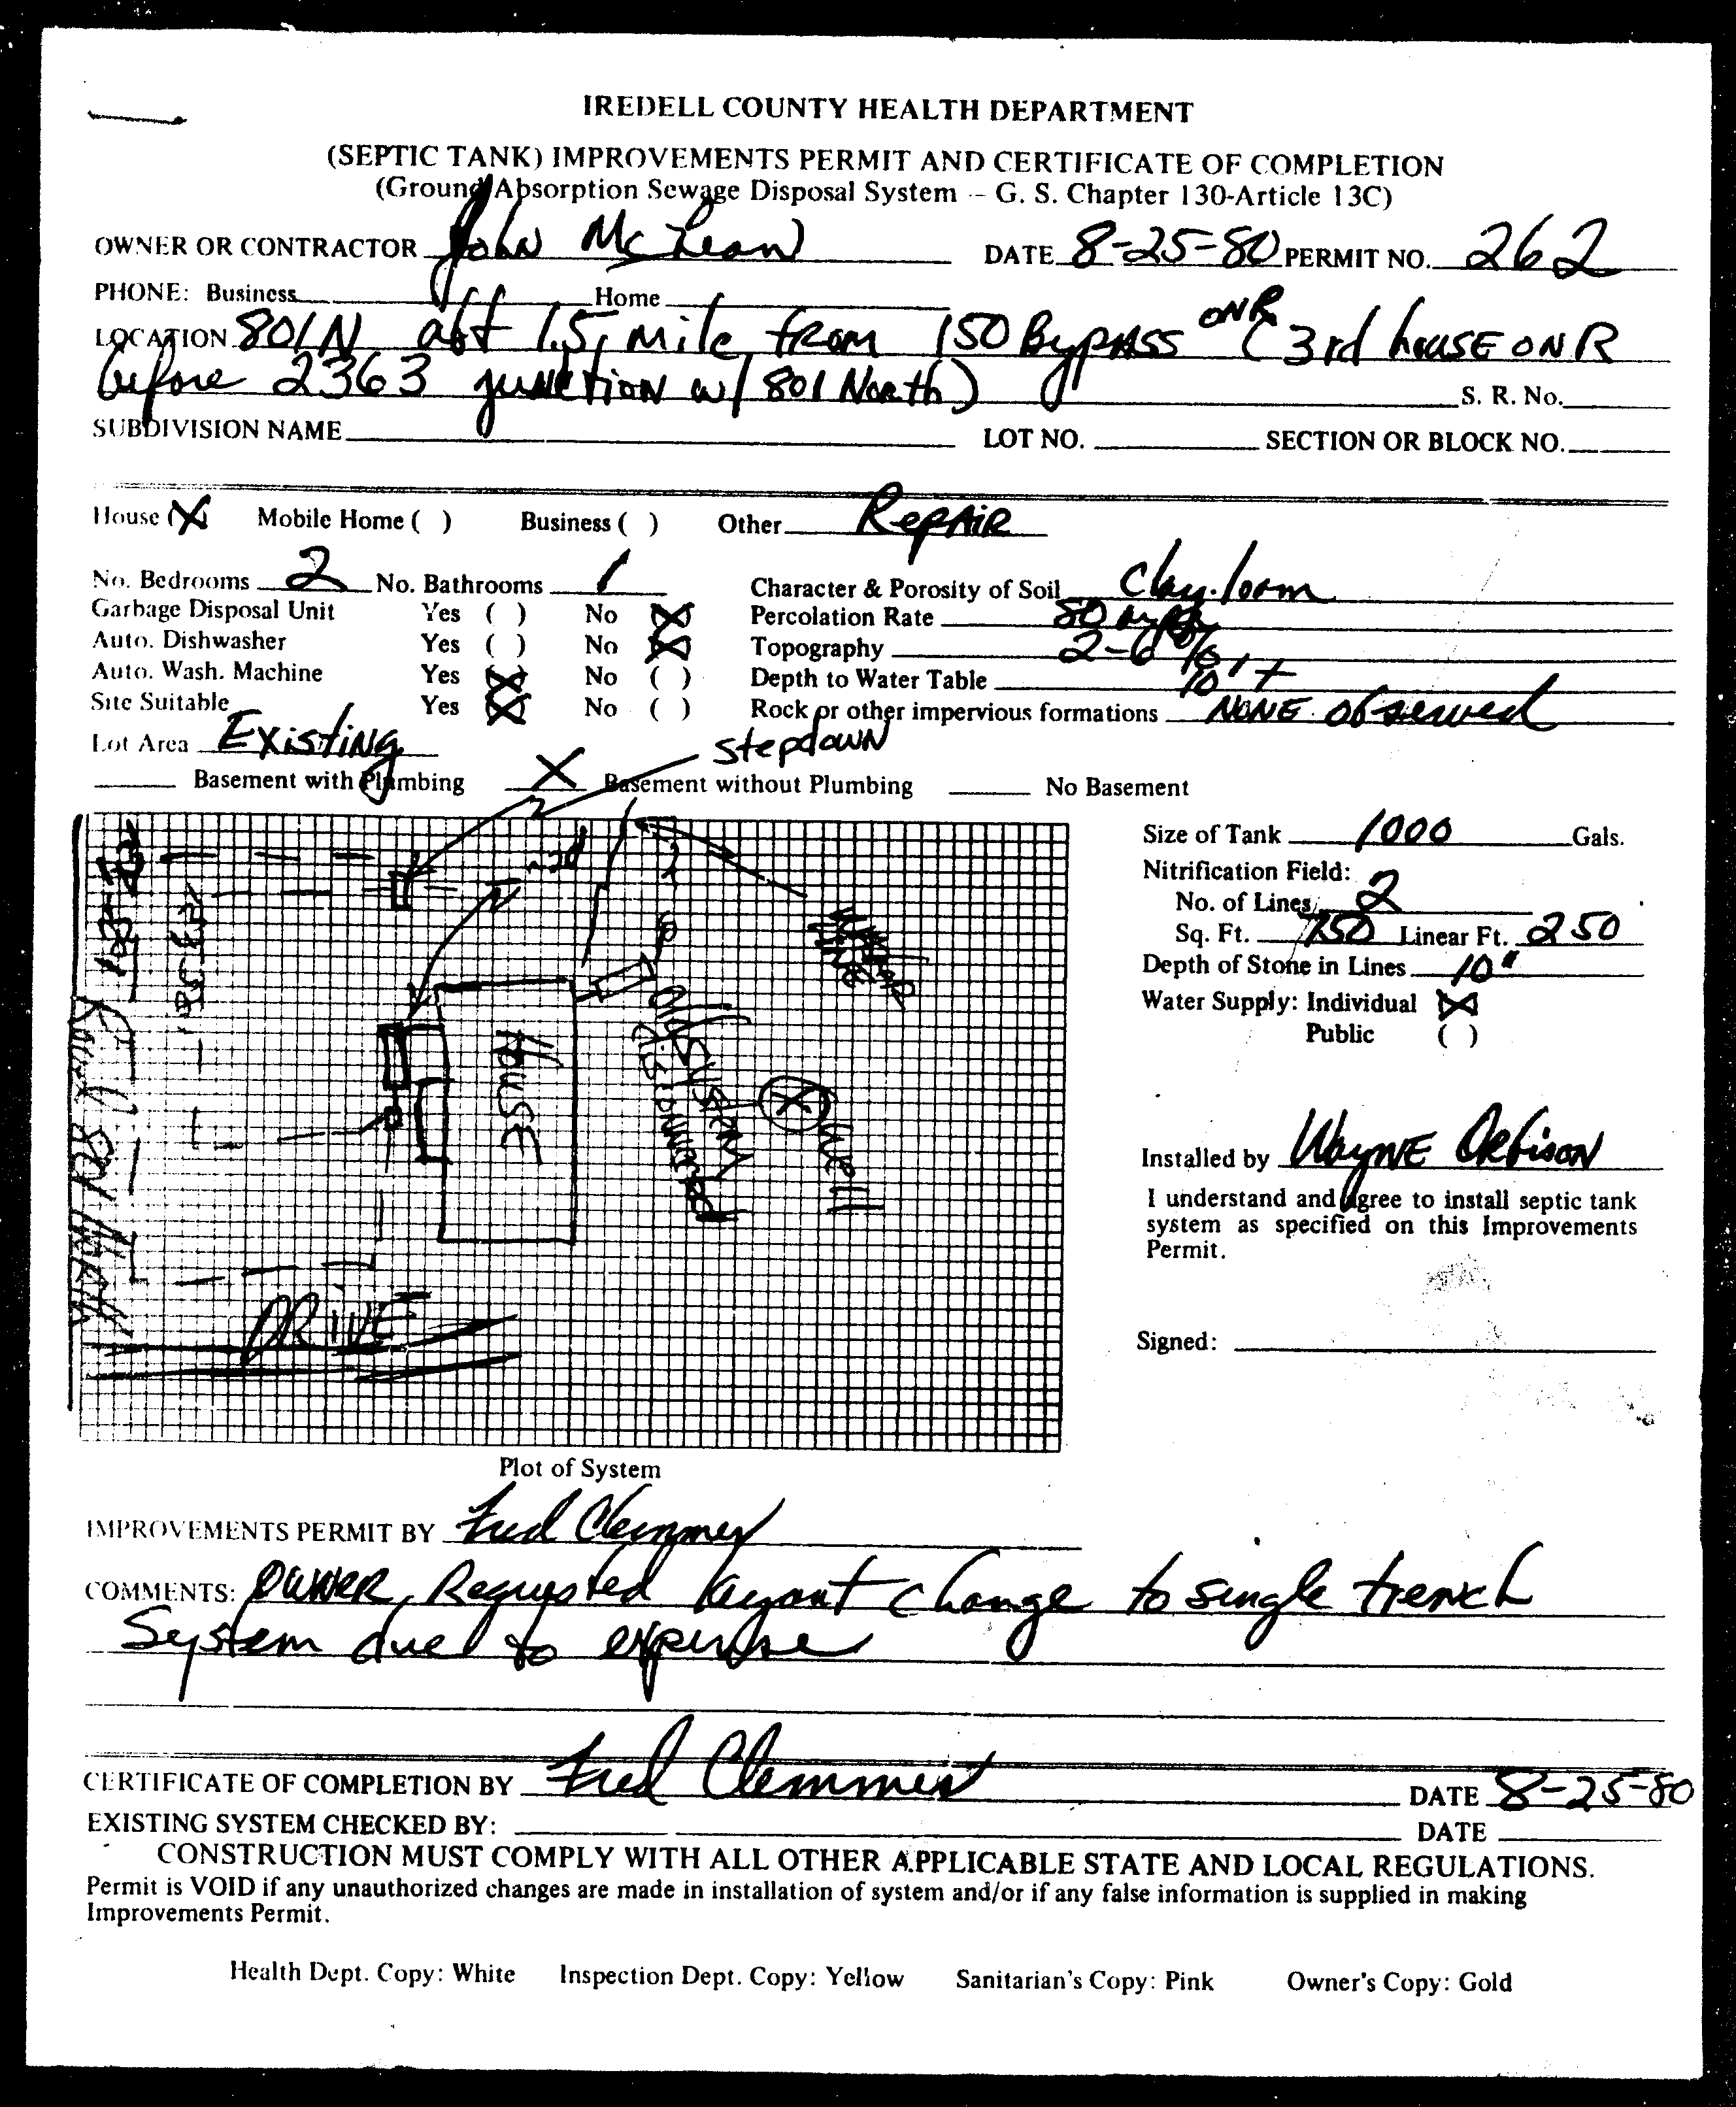 IREDELL COUNTY HEALTH DEPARTMENT
(SEPTIC TANK) IMPROVEMENTS PERMIT AND CERTIFICATE OF COMPLETION
(Ground Absorption Sewage Disposal System -- G. S. Chapter 130-Article 13C)
OWNER OR CONTRACTOR John McLean DATE 8-25-80 PERMIT NO. 262
PHONE: Business Home
LOCATION 801N 1.5 mile from 150 Bypass ON R (3rd house ON R
before 2363 junction w/ 801 North) S. R. No.
SUBDIVISION NAME LOT NO. SECTION OR BLOCK NO.
House (X) Mobile Home ( ) Business ( ) Other Repair
No. Bedrooms 2 No. Bathrooms 1 Character & Porosity of Soil Clay-loam
Garbage Disposal Unit Yes ( ) No (X) Percolation Rate 80
Auto. Dishwasher Yes ( ) No (X) Topography 2-6%
Auto. Wash. Machine Yes (X) No ( ) Depth to Water Table 10'+
Site Suitable Yes (X) No ( ) Rock or other impervious formations NONE observed
Lot Area Existing stepdown
Basement with Plumbing X Basement without Plumbing No Basement
Size of Tank 1000 Gals.
Nitrification Field:
No. of Lines 2
Sq. Ft. 750 Linear Ft. 250
Depth of Stone in Lines 10"
Water Supply: Individual (X)
Public ( )
HOUSE
Old System
Well
DRIVE
Installed by Wayne Orbison
I understand and agree to install septic tank
system as specified on this Improvements
Permit.
Signed:
Plot of System
IMPROVEMENTS PERMIT BY Fred Clemmer
COMMENTS: OWNER Requested layout change to single trench
System due to expense
CERTIFICATE OF COMPLETION BY Fred Clemmer DATE 8-25-80
EXISTING SYSTEM CHECKED BY: DATE
CONSTRUCTION MUST COMPLY WITH ALL OTHER APPLICABLE STATE AND LOCAL REGULATIONS.
Permit is VOID if any unauthorized changes are made in installation of system and/or if any false information is supplied in making
Improvements Permit.
Health Dept. Copy: White Inspection Dept. Copy: Yellow Sanitarian's Copy: Pink Owner's Copy: Gold